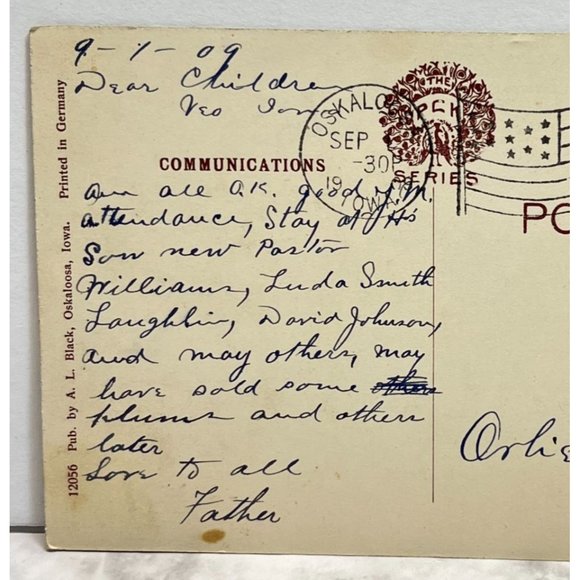 9-1-09
Dear Children
Veo Iowa
COMMUNICATIONS
am all O.K. good Y.M.
attendance, Stay at H's
Son new Pastor
Williams, Luda Smith
Laughlin, David Johnson,
and may others, may
have sold some
plums and others
later
Love to all
Father
12056 Pub. by A. L. Black, Oskaloosa, Iowa. Printed in Germany
OSKALOO
SEP
-30P
19
IOWA
THE
PCK
SERIES
PO
Orlie